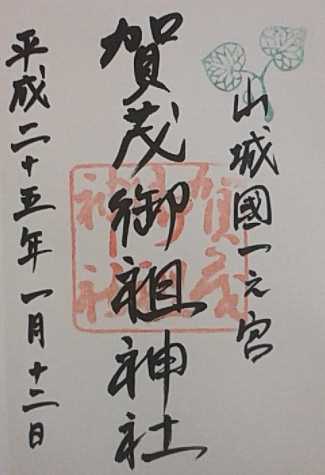 山城國一之宮
賀茂御祖神社
平成二十五年一月十二日